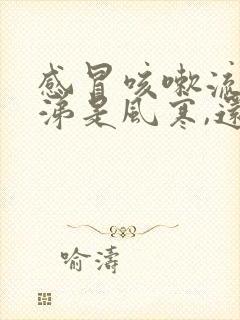 感冒咳嗽流
涕是風寒,還
喻濤